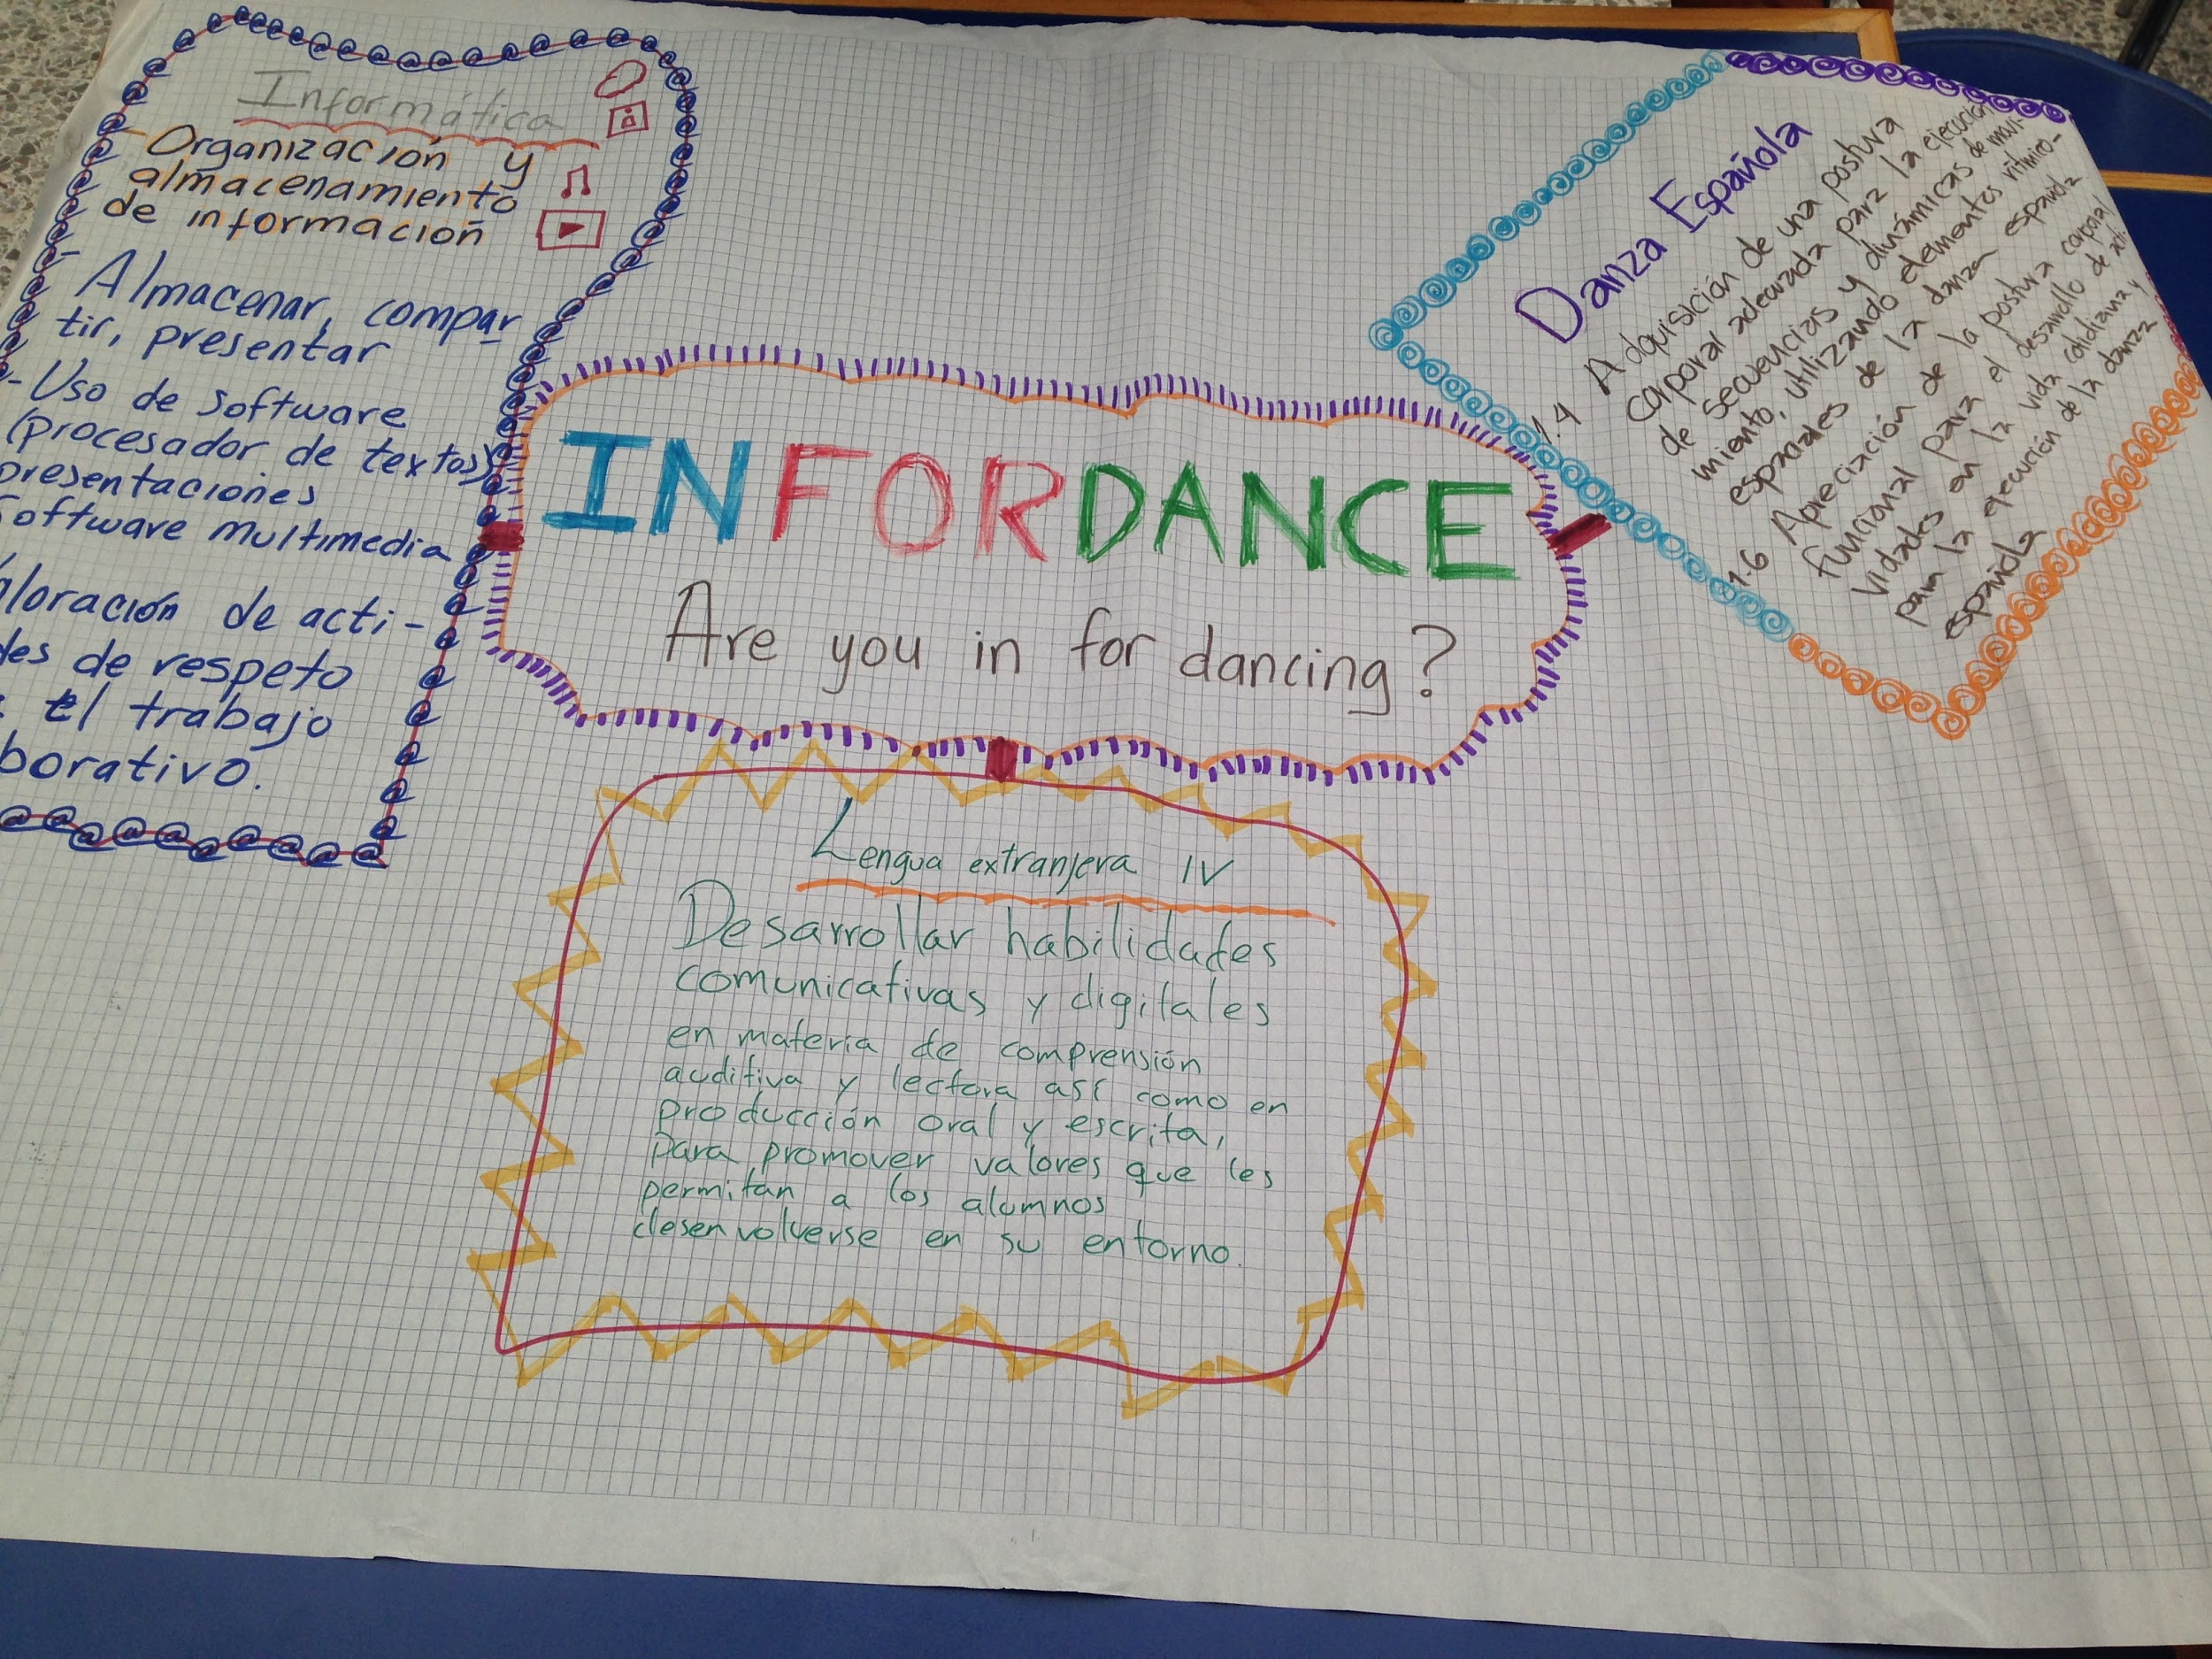 Informática
- Organización y
almacenamiento
de información
- Almacenar, compar
tir, presentar
- Uso de software
(procesador de textos)
presentaciones
Software multimedia
aloración de acti-
des de respeto
el trabajo
borativo.
INFORDANCE
Are you in for dancing?
Danza Española
1.4 Adquisición de una postura
corporal adecuada para la ejecución
de secuencias y dinámicas de movi-
miento, utilizando elementos rítmico-
espaciales de la danza española
1.6 Apreciación de la postura corporal
funcional para el desarrollo de acti-
vidades en la vida cotidiana y
para la ejecución de la danza
española
Lengua extranjera IV
Desarrollar habilidades
comunicativas y digitales
en materia de comprensión
auditiva y lectora así como en
producción oral y escrita,
para promover valores que les
permitan a los alumnos
desenvolverse en su entorno.